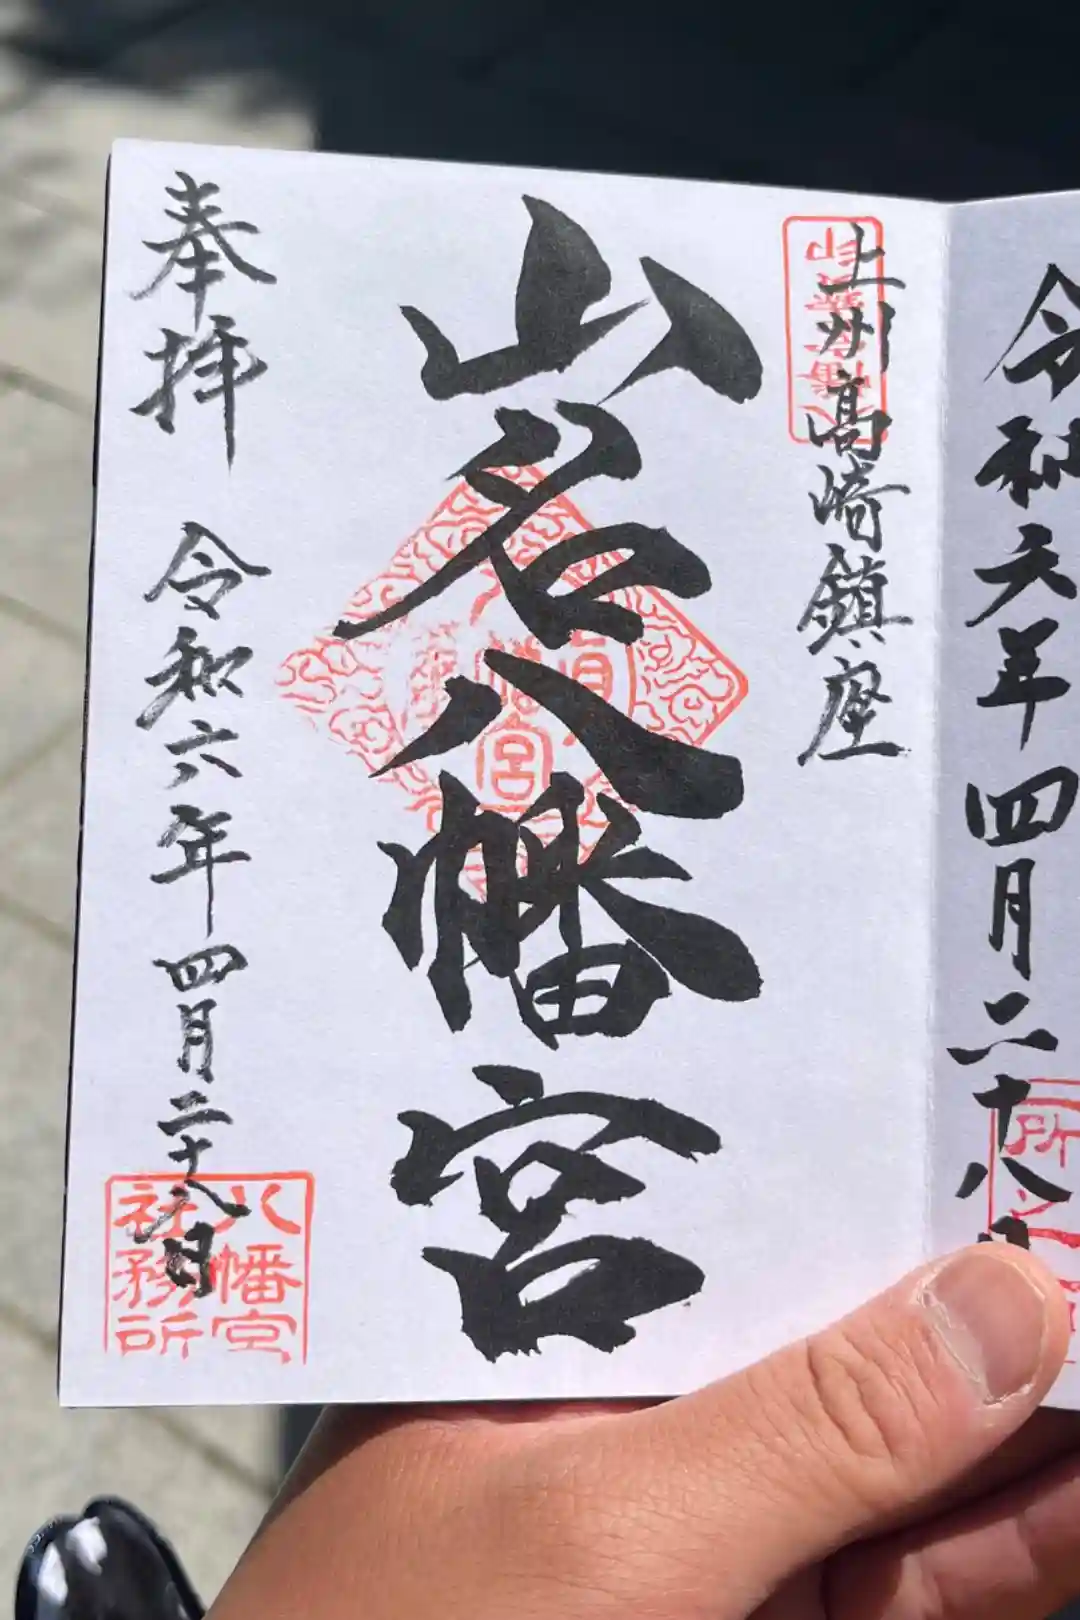 令和六年四月二十八日
上州高崎鎮座
山名八幡宮
奉拝 令和六年四月二十八日
八幡宮
社務所